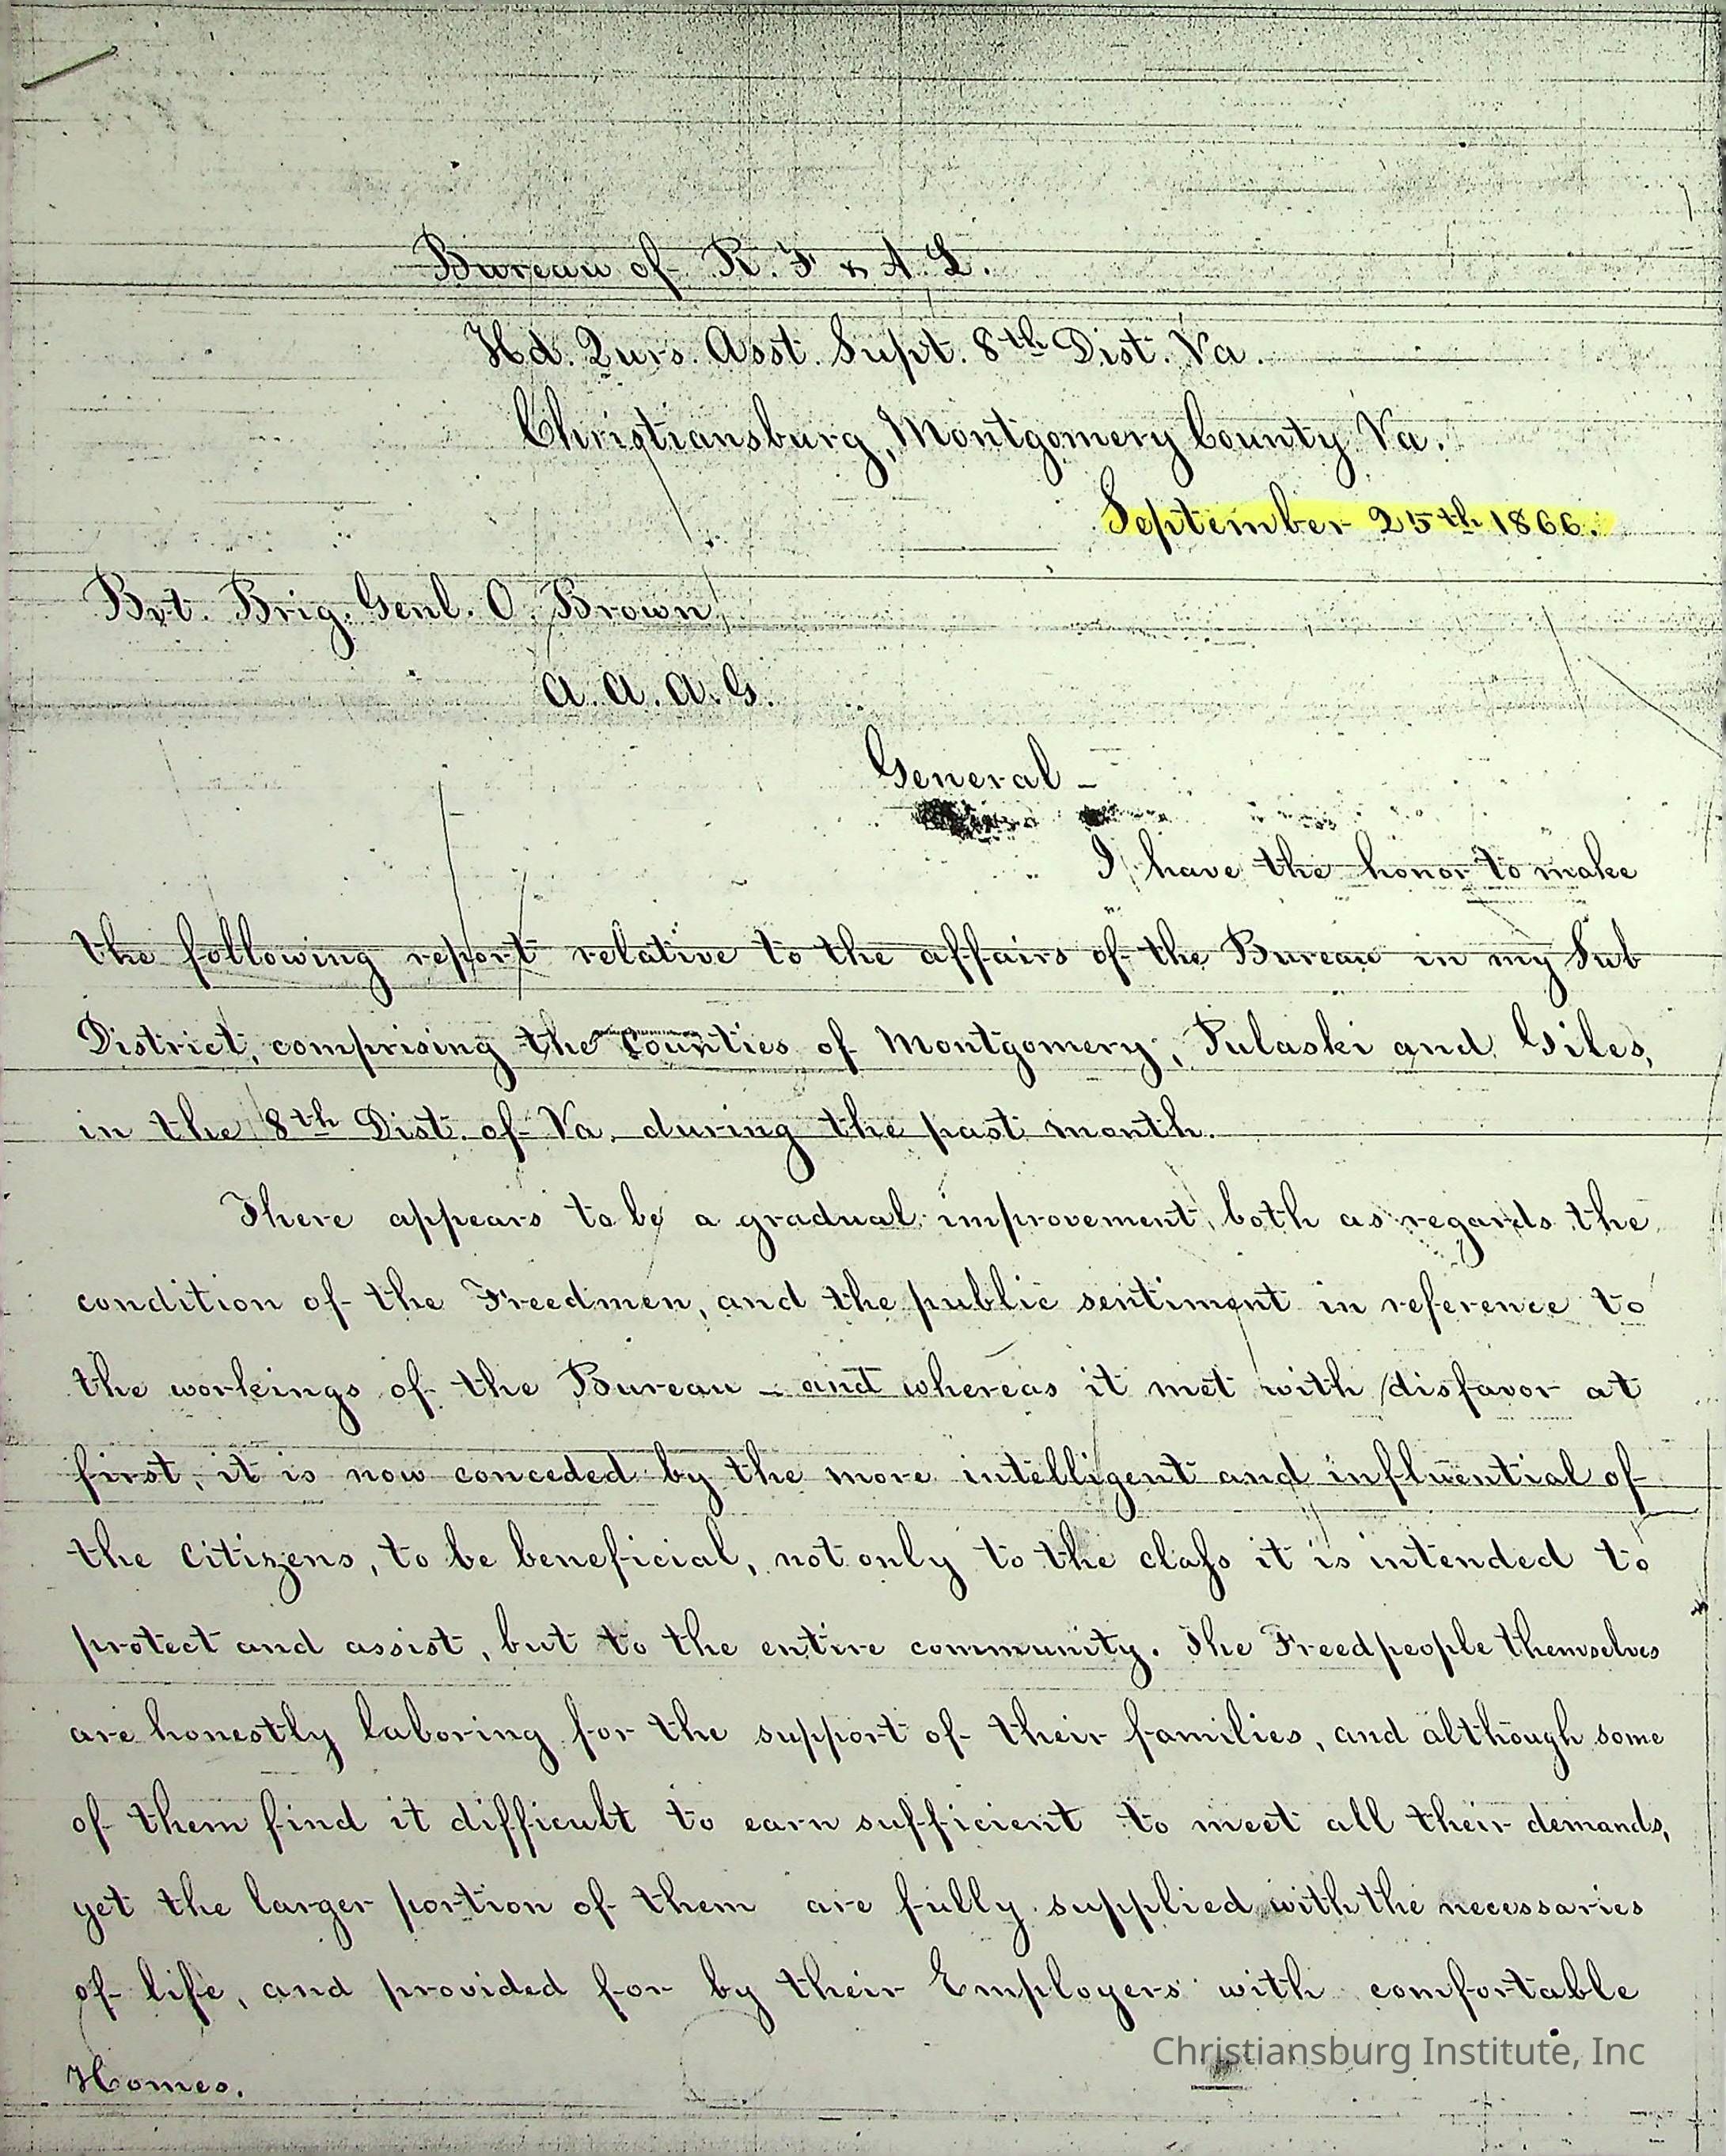 Bureau of R. F & A. L.
Hd. Qurs. Asst. Supt. 8th Dist. Va.
Christiansburg, Montgomery County Va.
September 25th 1866.
Bvt. Brig. Genl. O. Brown
A. A. A. G.
General -
I have the honor to make
the following report relative to the affairs of the Bureau in my Sub
District, comprising the Counties of Montgomery, Pulaski and Giles,
in the 8th Dist. of Va. during the past month.
There appears to be a gradual improvement, both as regards the
condition of the Freedmen, and the public sentiment in reference to
the workings of the Bureau - and whereas it met with disfavor at
first, it is now conceded by the more intelligent and influential of
the citizens, to be beneficial, not only to the class it is intended to
protect and assist, but to the entire community. The Freedpeople themselves
are honestly laboring for the support of their families, and although some
of them find it difficult to earn sufficient to meet all their demands,
yet the larger portion of them are fully supplied with the necessaries
of life, and provided for by their Employers with comfortable
Homes.
Christiansburg Institute, Inc